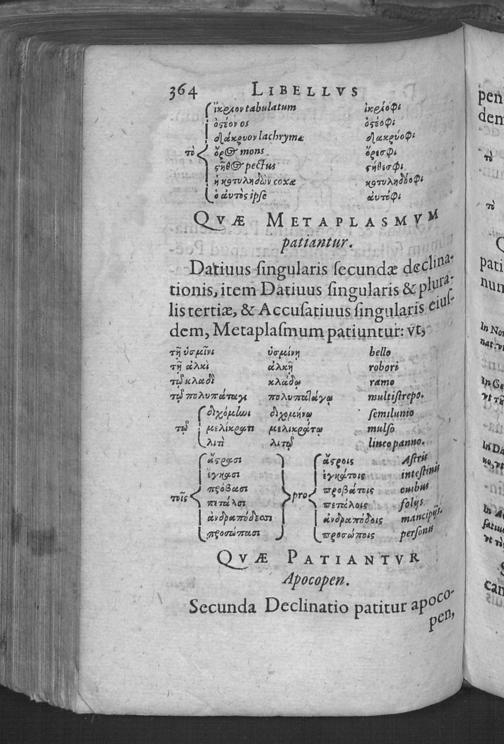 364 LIBELLVS
ἴκριον tabulatum ἰκριόφι
ὀστέον os ὀστεόφι
δάκρυον lachryma δακρυόφι
τὸ ὄρος mons ὄρεσφι
στῆθος pectus στήθεσφι
ἡ κοτυληδὼν coxa κοτυληδόφι
ὁ αὐτὸς ipse αὐτόφι
QVÆ METAPLASMVM
patiantur.
Datiuus singularis secundæ declina-
tionis, item Datiuus singularis & plura-
lis tertiæ, & Accusatiuus singularis eius-
dem, Metaplasmum patiuntur: vt,
τῇ ὑσμῖνι ὑσμίνῃ bello
τῇ ἀλκὶ ἀλκῇ robori
τῷ κλαδὶ κλάδῳ ramo
τῷ πολυπάταγι πολυπατάγῳ multistrepo.
διχόμηνι διχομήνῳ semilunio
τῷ μελίκρατι μελικράτῳ mulso
λιτὶ λιτῷ lineo panno.
ἄστρασι ἄστροις Astris
ἔγκασι ἐγκάτοις intestinis
πρόβασι προβάτοις ouibus
τοῖς πέταλσι pro πετάλοις folijs
ἀνδραπόδεσσι ἀνδραπόδοις mancipijs.
προσώπασι προσώποις personis
QVÆ PATIANTVR
Apocopen.
Secunda Declinatio patitur apoco-
pen,
pen
dem
τὸ
τὸ
pati
num
In
In
can